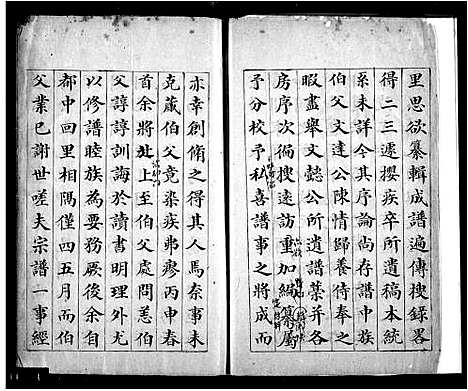 里思欲纂輯成譜遍傳搜錄畧
得二三遽攖疾卒所遺稿本統
系未詳今其序論尚存譜中族
伯父文達公陳情歸養侍奉之
暇盡舉文懿公所遺譜藁并各
房序次徧搜遠訪重加編纂屬
予分校予私喜譜事之將成而
亦幸創脩之得其人焉奈事未
克蕆伯父竟染疾弗瘳丙申春
首余將北上至伯父處問恙伯
父諄諄訓誨於讀書明理外尤
以修譜睦族為要務厥後余自
都中回里相隔僅四五月而伯
父業已謝世嗟夫宗譜一事經